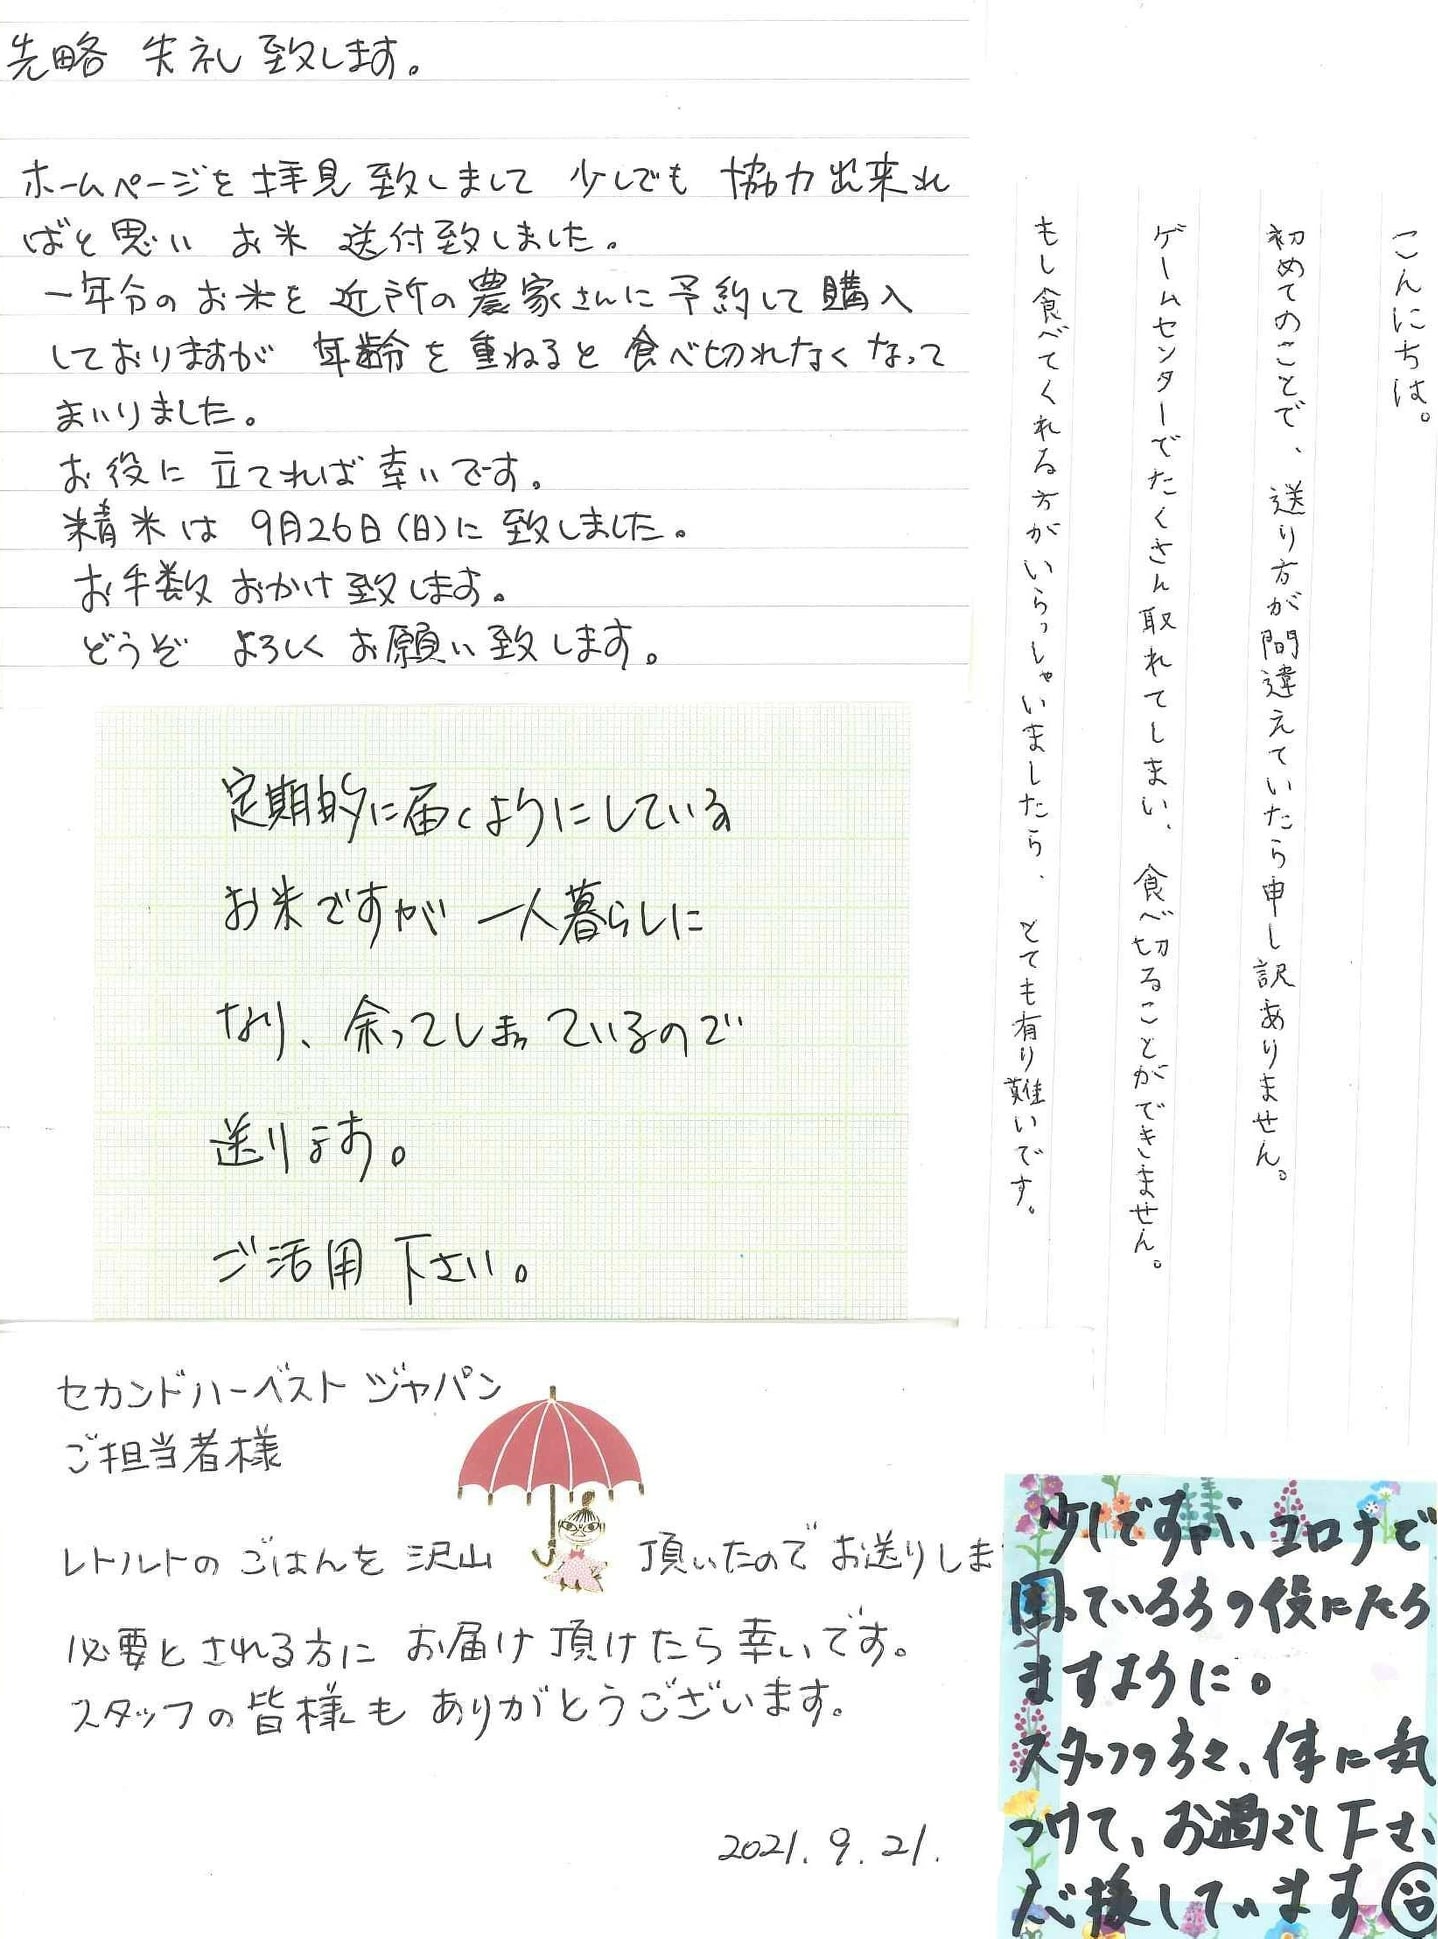 先略 失礼致します。
ホームページを拝見致しまして 少しでも 協力出来れ
ばと思い お米 送付致しました。
一年分のお米を 近所の農家さんに予約して購入
しておりますが 年齢を重ねると 食べ切れなくなって
まいりました。
お役に立てれば幸いです。
精米は 9月26日(日)に致しました。
お手数おかけ致します。
どうぞ よろしくお願い致します。
こんにちは。
初めてのことで、送り方が間違えていたら申し訳ありません。
ゲームセンターでたくさん取れてしまい、食べ切ることができません。
もし食べてくれる方がいらっしゃいましたら、とても有り難いです。
定期的に届くようにしている
お米ですが 一人暮らしに
なり、余ってしまっているので
送ります。
ご活用下さい。
セカンドハーベストジャパン
ご担当者様
レトルトのごはんを沢山 頂いたのでお送りしま
必要とされる方に お届け頂けたら幸いです。
スタッフの皆様も ありがとうございます。
2021.9.21.
少しですが、コロナで
困っている方の役にたち
ますように。
スタッフの方々、体に気
つけて、お過ごし下さい
応援しています